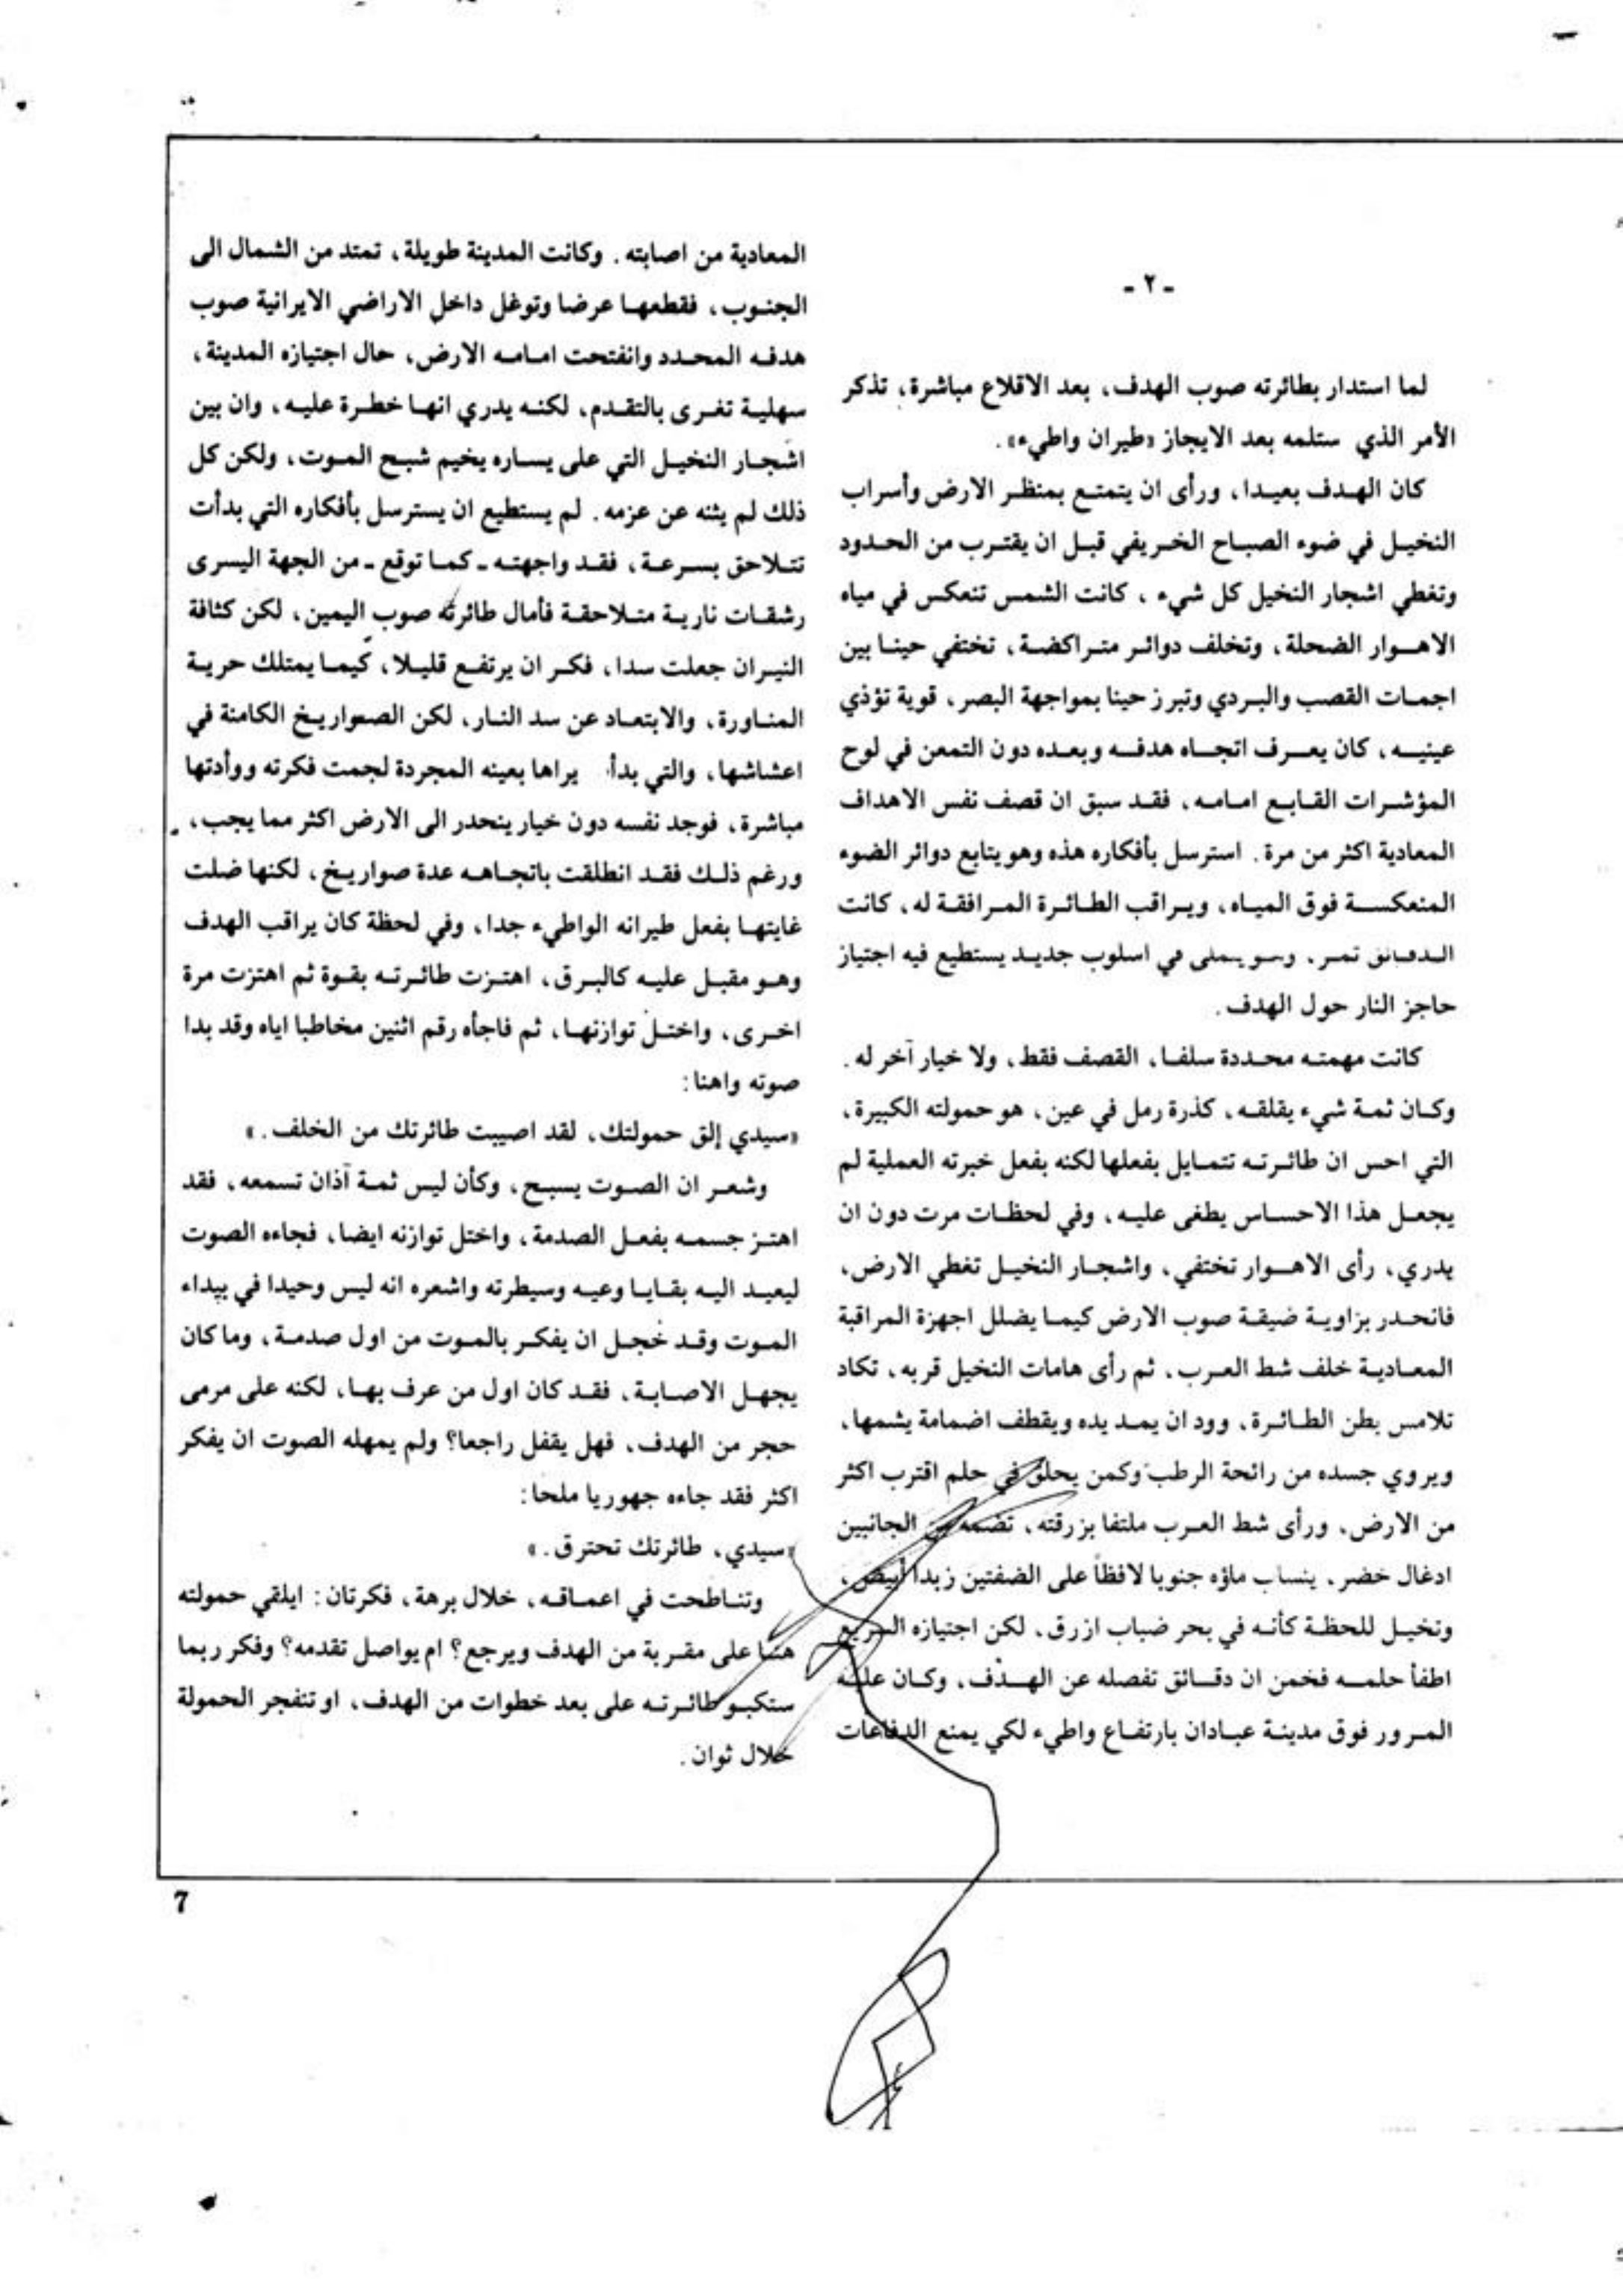 - ٢ -
لما استدار بطائرته صوب الهدف، بعد الاقلاع مباشرة، تذكر
الأمر الذي ستلمه بعد الايجاز «طيران واطيء».
كان الهدف بعيدا، ورأى ان يتمتع بمنظر الارض وأسراب
النخيل في ضوء الصباح الخريفي قبل ان يقترب من الحدود
وتغطي اشجار النخيل كل شيء، كانت الشمس تنعكس في مياه
الاهوار الضحلة، وتخلف دوائر متراكضة، تختفي حينا بين
اجمات القصب والبردي وتبرز حينا بمواجهة البصر، قوية تؤذي
عينيه، كان يعرف اتجاه هدفه وبعده دون التمعن في لوح
المؤشرات القابع امامه، فقد سبق ان قصف نفس الاهداف
المعادية اكثر من مرة. استرسل بأفكاره هذه وهو يتابع دوائر الضوء
المنعكسة فوق المياه، ويراقب الطائرة المرافقة له، كانت
تمر، في اسلوب جديد يستطيع فيه اجتياز
حاجز النار حول الهدف.
كانت مهمته محددة سلفا، القصف فقط، ولا خيار آخر له.
وكان ثمة شيء يقلقه، كذرة رمل في عين، هو حمولته الكبيرة،
التي احس ان طائرته تتمايل بفعلها لكنه بفعل خبرته العملية لم
يجعل هذا الاحساس يطغى عليه، وفي لحظات مرت دون ان
يدري، رأى الاهوار تختفي، واشجار النخيل تغطي الارض،
فانحدر بزاوية ضيقة صوب الارض كيما يضلل اجهزة المراقبة
المعادية خلف شط العرب، ثم رأى هامات النخيل قربه، تكاد
تلامس بطن الطائرة، وود ان يمد يده ويقطف اضمامة يشمها،
ويروي جسده من رائحة الرطب وكمن يحلق في حلم اقترب اكثر
من الارض، ورأى شط العرب ملتفا بزرقته، تضمه من الجانبين
ادغال خضر، ينساب ماؤه جنوبا لافظاً على الضفتين زبدا أبيض،
وتخيل للحظة كأنه في بحر ضباب ازرق، لكن اجتيازه السريع
اطفأ حلمه فخمن ان دقائق تفصله عن الهدف، وكان عليه
المرور فوق مدينة عبادان بارتفاع واطيء لكي يمنع الدفاعات
المعادية من اصابته. وكانت المدينة طويلة، تمتد من الشمال الى
الجنوب، فقطعها عرضا وتوغل داخل الاراضي الايرانية صوب
هدفه المحدد وانفتحت امامه الارض، حال اجتيازه المدينة،
سهلية تغرى بالتقدم، لكنه يدري انها خطرة عليه، وان بين
اشجار النخيل التي على يساره يخيم شبح الموت، ولكن كل
ذلك لم يثنه عن عزمه. لم يستطيع ان يسترسل بأفكاره التي بدأت
تتلاحق بسرعة، فقد واجهته - كما توقع - من الجهة اليسرى
رشقات نارية متلاحقة فأمال طائرته صوب اليمين، لكن كثافة
النيران جعلت سدا، فكر ان يرتفع قليلا، كيما يمتلك حرية
المناورة، والابتعاد عن سد النار، لكن الصواريخ الكامنة في
اعشاشها، والتي بدأ يراها بعينه المجردة لجمت فكرته ووأدتها
مباشرة، فوجد نفسه دون خيار ينحدر الى الارض اكثر مما يجب،
ورغم ذلك فقد انطلقت باتجاهه عدة صواريخ، لكنها ضلت
غايتها بفعل طيرانه الواطيء جدا، وفي لحظة كان يراقب الهدف
وهو مقبل عليه كالبرق، اهتزت طائرته بقوة ثم اهتزت مرة
اخرى، واختل توازنها، ثم فاجأه رقم اثنين مخاطبا اياه وقد بدا
صوته واهنا:
«سيدي إلق حمولتك، لقد اصيبت طائرتك من الخلف.»
وشعر ان الصوت يسبح، وكأن ليس ثمة آذان تسمعه، فقد
اهتز جسمه بفعل الصدمة، واختل توازنه ايضا، فجاءه الصوت
ليعيد اليه بقايا وعيه وسيطرته واشعره انه ليس وحيدا في بيداء
الموت وقد خجل ان يفكر بالموت من اول صدمة، وما كان
يجهل الاصابة، فقد كان اول من عرف بها، لكنه على مرمى
حجر من الهدف، فهل يقفل راجعا؟ ولم يمهله الصوت ان يفكر
اكثر فقد جاءه جهوريا ملحا:
«سيدي، طائرتك تحترق.»
وتناطحت في اعماقه، خلال برهة، فكرتان: ايلقي حمولته
هنا على مقربة من الهدف ويرجع؟ ام يواصل تقدمه؟ وفكر ربما
ستكبو طائرته على بعد خطوات من الهدف، او تنفجر الحمولة
خلال ثوان.
7